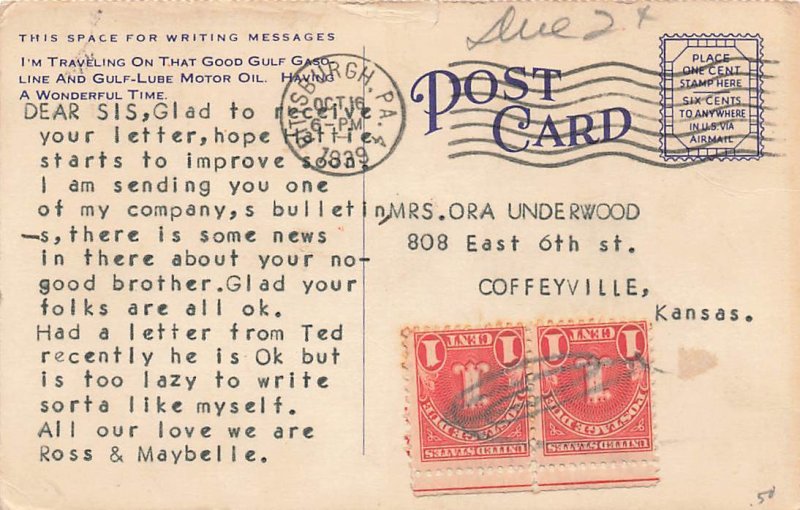 THIS SPACE FOR WRITING MESSAGES
I'M TRAVELING ON THAT GOOD GULF GASO
LINE AND GULF-LUBE MOTOR OIL. HAVING
A WONDERFUL TIME.
DEAR SIS,Glad to receive
your letter,hope
starts to improve soon.
I am sending you one
of my company,s bulletin
-s,there is some news
in there about your no-
good brother.Glad your
folks are all ok.
Had a letter from Ted
recently he is Ok but
is too lazy to write
sorta like myself.
All our love we are
Ross & Maybelle.
PITTSBURGH, PA. 4
OCT 16
6-PM
1939
Due 2¢
POST
CARD
PLACE
ONE CENT
STAMP HERE
SIX CENTS
TO ANYWHERE
IN U.S. VIA
AIRMAIL
MRS.ORA UNDERWOOD
808 East 6th st.
COFFEYVILLE,
Kansas.
1 CENT 1
POSTAGE DUE
UNITED STATES
1 CENT 1
POSTAGE DUE
UNITED STATES
.50